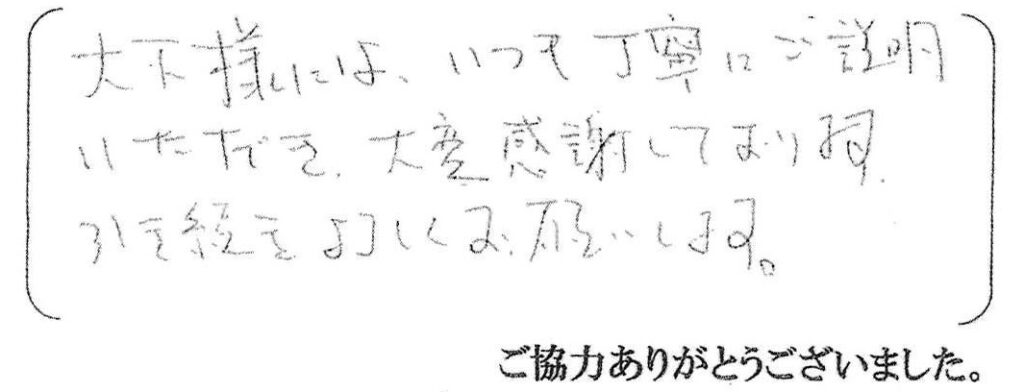 大下様には、いつも丁寧にご説明
いただき、大変感謝しております。
引き続きよろしくお願いします。
ご協力ありがとうございました。